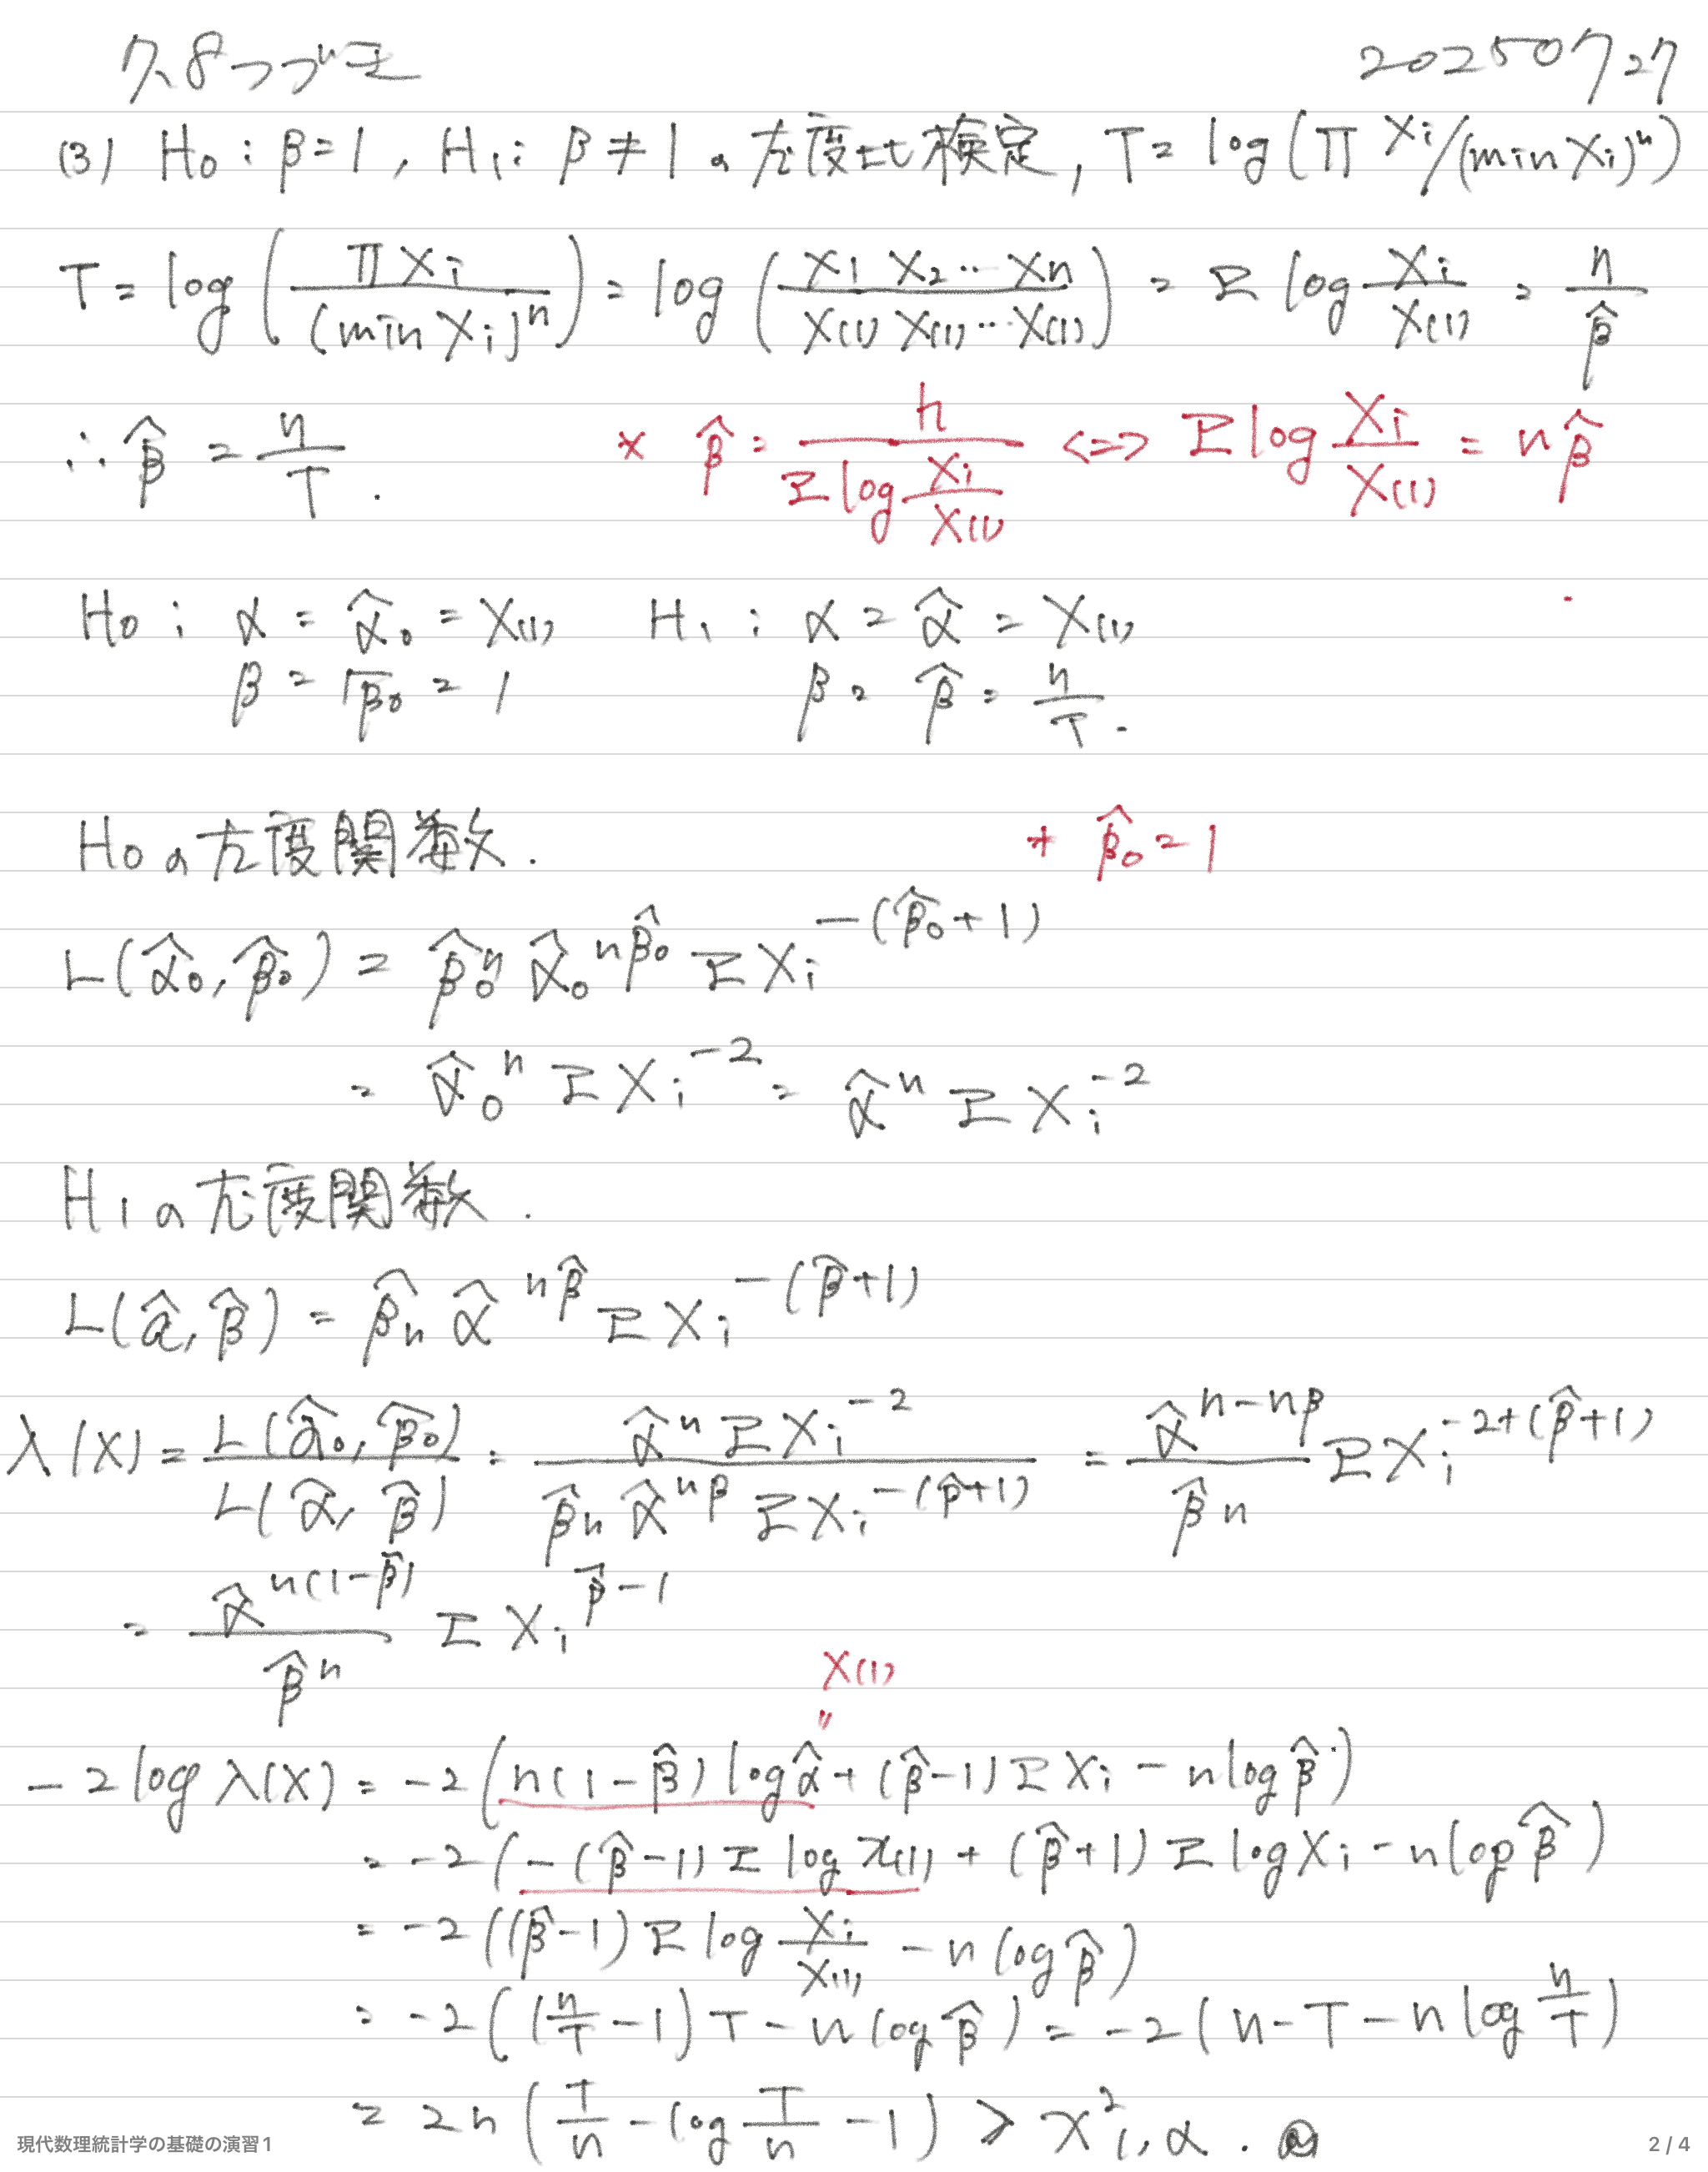 7.8つづき 20250727
(3) H₀ : β = 1 , H₁ : β ≠ 1 の尤度比検定 , T = log(Π Xi/(min Xi)ⁿ)
T = log(ΠXi / (min Xi)ⁿ) = log(X1 X2 … Xn / X(1) X(1) … X(1)) = Σ log Xi/X(1) = n/β̂
∴ β̂ = n/T . * β̂ = n / Σ log Xi/X(1) <=> Σ log Xi/X(1) = n β̂
H₀ : α = α̂₀ = X(1) H₁ : α = α̂ = X(1)
β = β̂₀ = 1 β = β̂ = n/T .
H₀ の尤度関数 . * β̂₀ = 1
L(α̂₀, β̂₀) = β̂₀ⁿ α̂₀^{nβ̂₀} Σ Xi^{-(β̂₀+1)}
= α̂₀ⁿ Σ Xi^{-2} = α̂ⁿ Σ Xi^{-2}
H₁ の尤度関数 .
L(α̂, β̂) = β̂n α̂^{nβ̂} Σ Xi^{-(β̂+1)}
λ(X) = L(α̂₀, β̂₀) / L(α̂, β̂) = α̂ⁿ Σ Xi^{-2} / β̂n α̂^{nβ} Σ Xi^{-(β̂+1)} = α̂^{n-nβ} / β̂n Σ Xi^{-2+(β̂+1)}
= α̂^{n(1-β̂)} / β̂ⁿ Σ Xi^{β̂-1}
X(1)
〃
-2 log λ(X) = -2(n(1-β̂) log α̂ + (β̂-1) Σ Xi - n log β̂)
= -2(-(β̂-1) Σ log x(1) + (β̂+1) Σ log Xi - n log β̂)
= -2((β̂-1) Σ log Xi/X(1) - n log β̂)
= -2((n/T - 1) T - n log β̂) = -2(n - T - n log n/T)
= 2n(T/n - log T/n - 1) > χ²₁,α .
現代数理統計学の基礎の演習1 2 / 4